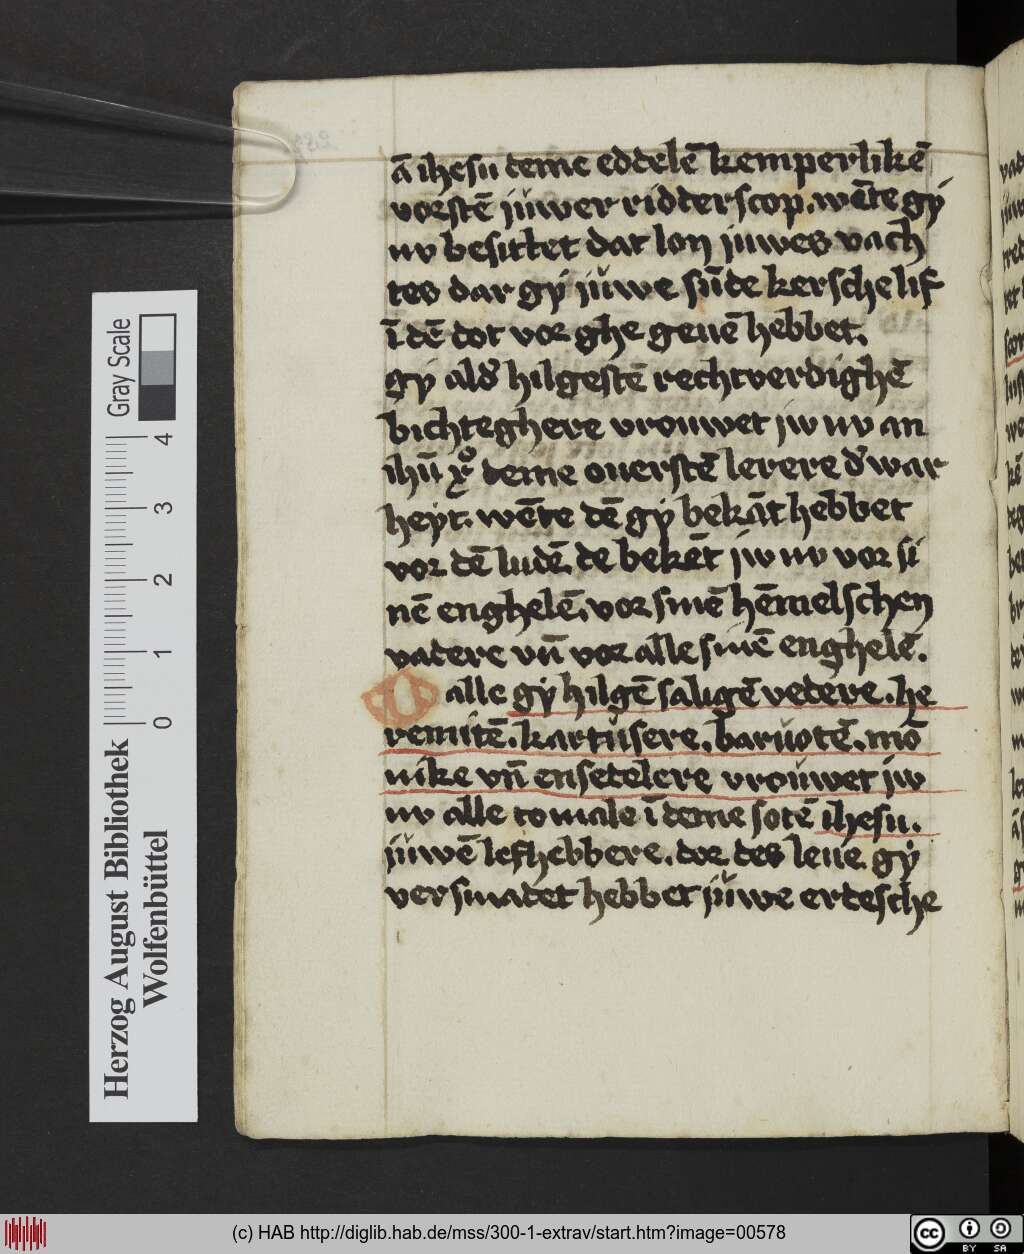 ā ihesu deme eddelē kemperlikē
vorstē jůwer ridderscop. wēte gy
nv besittet dat lon juwes vach
tes dar gy jůwe sūde kersche lif
ī dē dot vor ghe geuē hebbet.
gy ald' hilgestē rechtverdighē
bichteghere vrouwet jw nv an
ihū xº deme ouerstē lerere d' war
heyt. wēte dē gy bekāt hebbet
vor dē ludē. de bekēt jw nv vor si
nē enghelē. vor sinē hēmelschen
vadere vn̄ vor alle sinē enghelē.
O alle gy hilgē saligē vedere. he
remitē. kartůsere. barůotē. mō
nike vn̄ ensetelere vrouwet jw
nv alle tomale ī deme sotē ihesu.
jůwē lefhebbere. dor des leue gy
versmadet hebbet jůwe erdesche
Gray Scale
0 1 2 3 4
Herzog August Bibliothek
Wolfenbüttel
(c) HAB http://diglib.hab.de/mss/300-1-extrav/start.htm?image=00578
cc BY SA